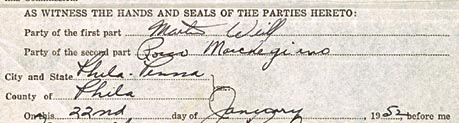 AS WITNESS THE HANDS AND SEALS OF THE PARTIES HERETO:
Party of the first part Martin Weill
Party of the second part Rocco Marchegiano
City and State Phila. Penna
County of Phila
On this 22nd day of January, 1952 before me